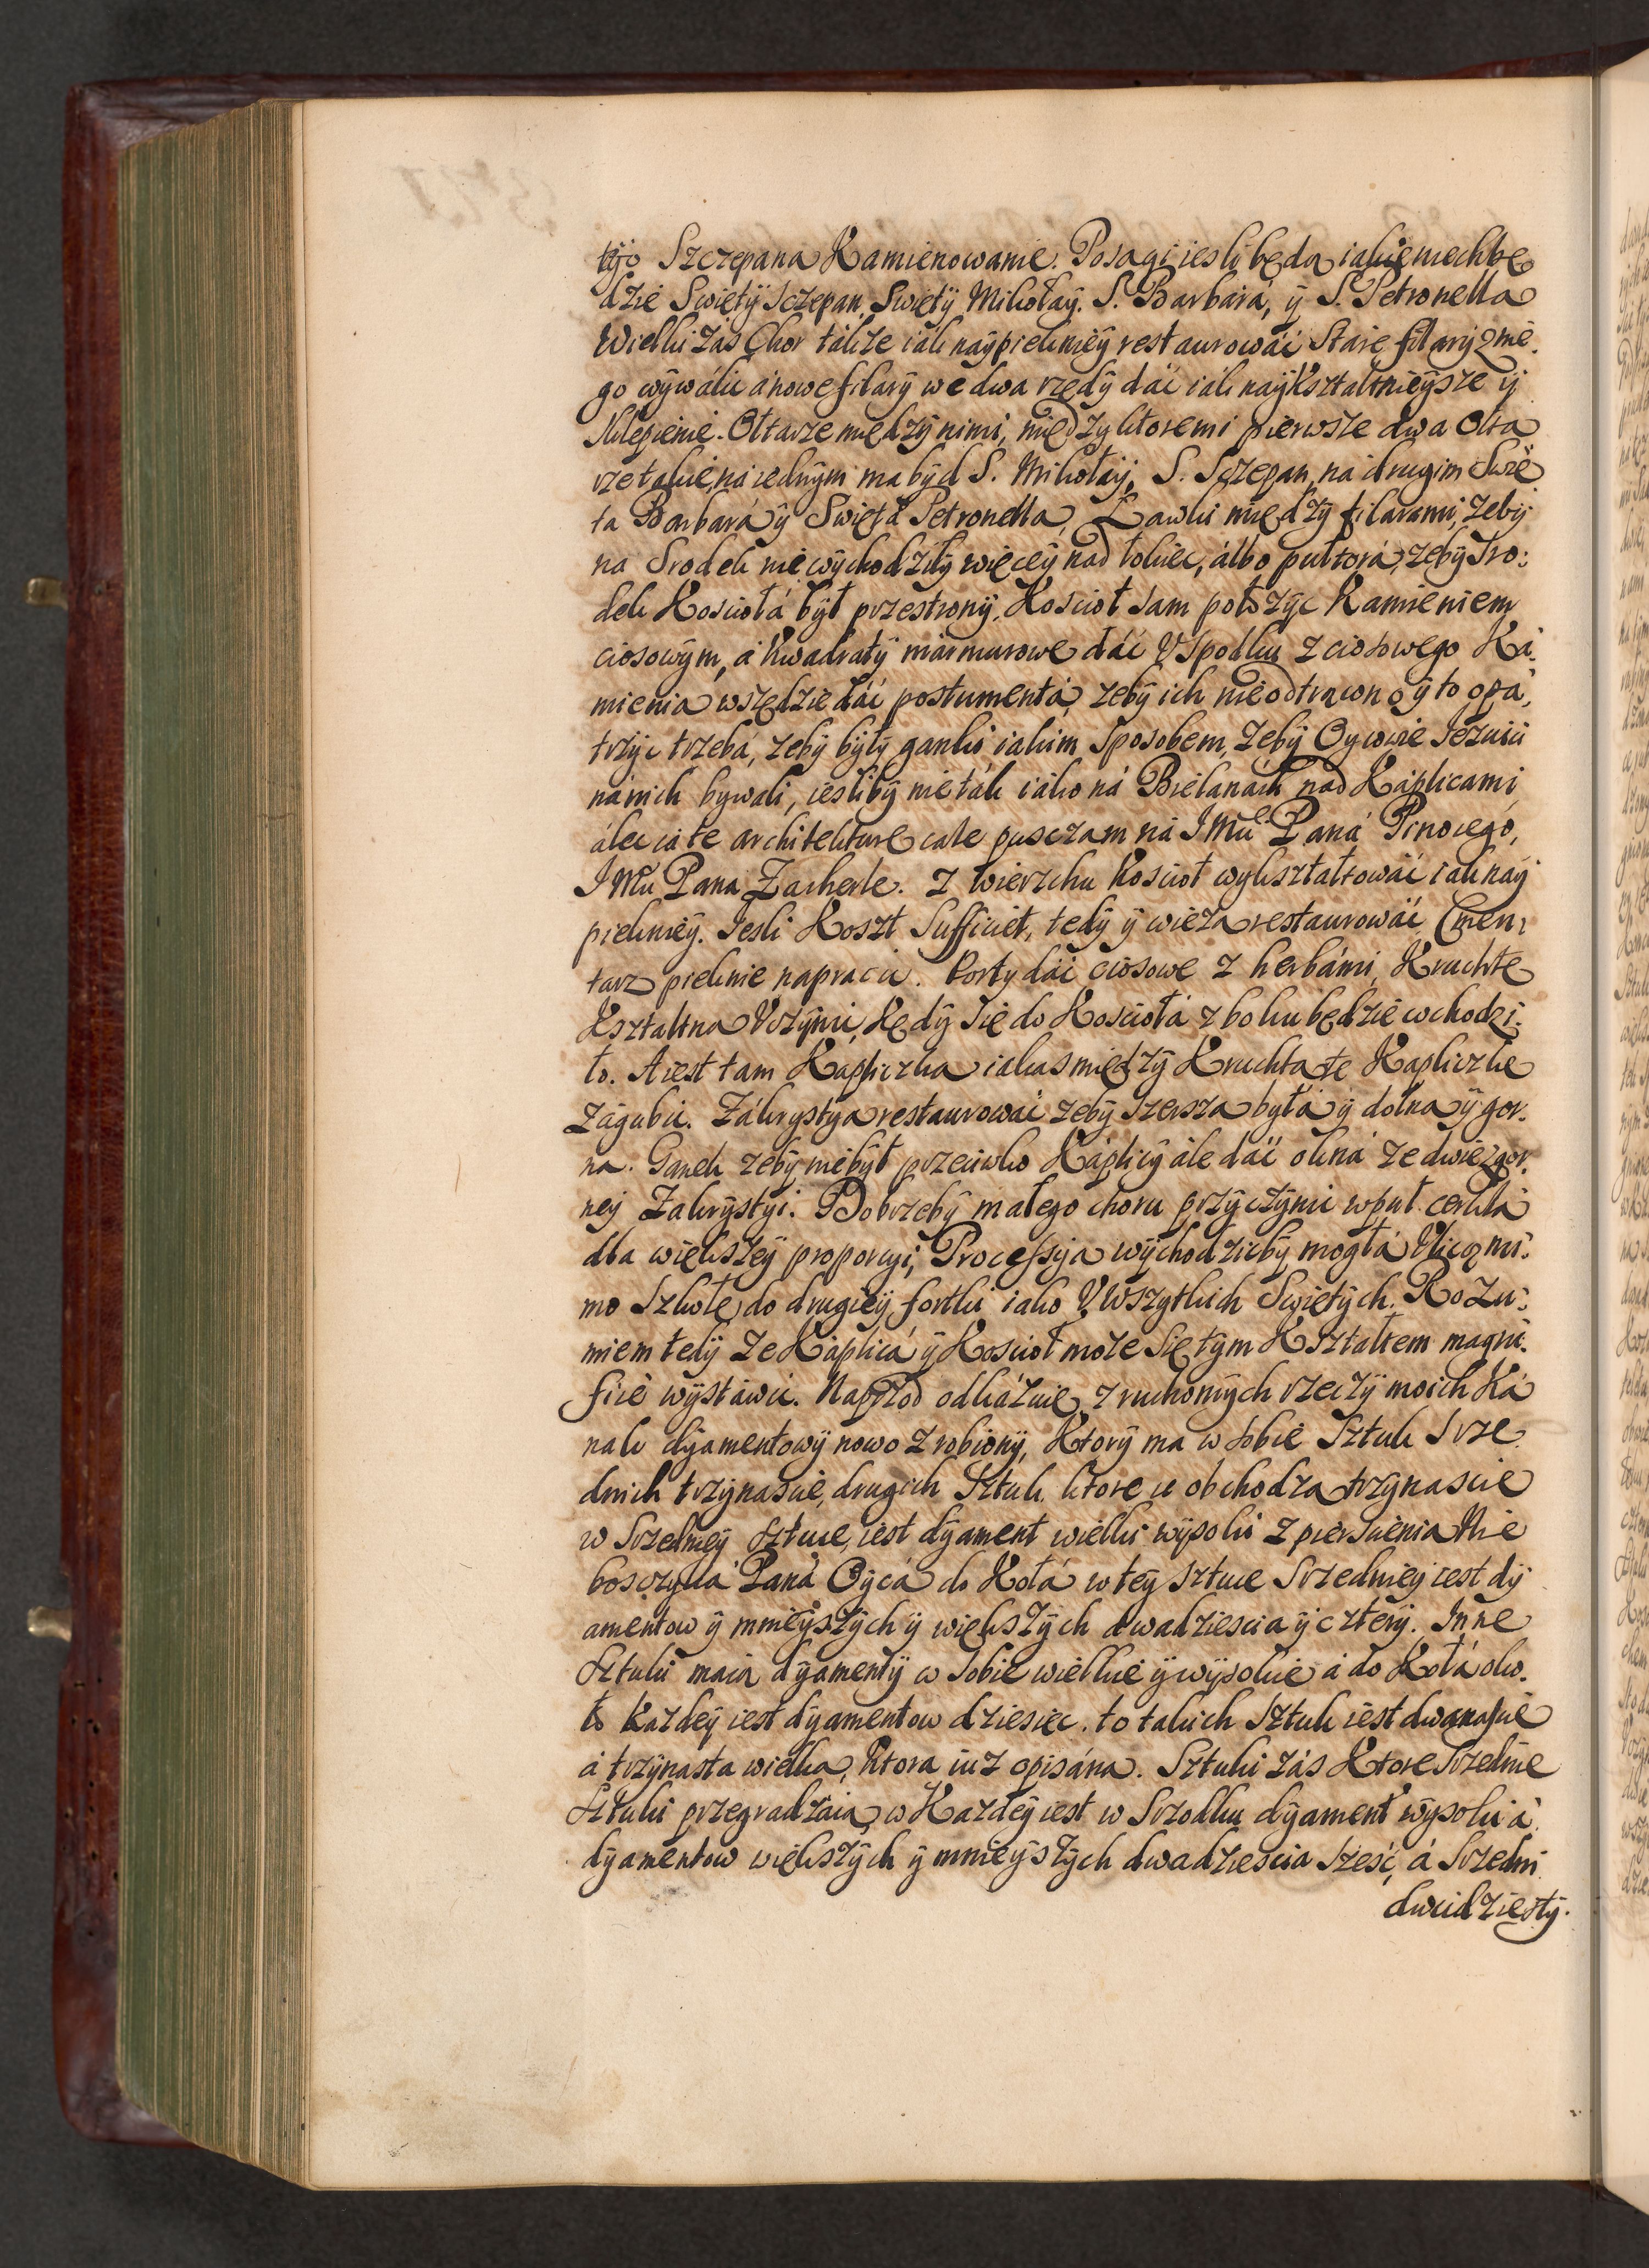 tÿo Szczepana Kamienowanie. Posagi iesli będą iakie niech bę
dzie Swiętÿ Sczepan, Swiętÿ Mikołaÿ. S. Barbará, ÿ S. Petronella
Wielki zás Chor tákze iák naÿpiekniéÿ restaurowáć Stare filarÿ z nie
go wÿwálić á nowe filarÿ we dwa rzędÿ dáć iák naÿkształtnieÿsze ÿ
sklepienie. Ołtarze międzÿ nimi, międzÿ ktoremi pierwsze dwa ołta
rze takie, ná iednÿm ma bÿd S. Mikołaÿ, S. Sczepan, ná drugim Swię
ta Barbará ÿ Swiętá Petronella, Ławki międzÿ filarami, zebÿ
na srodek nie wÿchodziłÿ więceÿ nad łokiec, álbo pułtorá, zebÿ sro:
dek Kosciołá bÿł przestronÿ. Koscioł sam połozÿc Kamieniem
ciosowÿm, á kwadratÿ mármurowe dáć V Spodku z ciosowego Ká:
mienia wszędzie dáć postumentá, zebÿ ich nie odtrącono ÿ to opá,
trzÿc trzebá, zebÿ bÿłÿ ganki iakim sposobem, zebÿ Oycowie Iezuici
ná nich bywali, ieslibÿ nie ták iáko ná Bielanách nad Káplicami
ále ia te architekturę cale pusczam ná IMci Paná Pinocego,
IMci Pana Zacherle. Z wierzchu Koscioł wykształtowáć iák náÿ
piekniéÿ. Iesli Koszt Sufficiet, tedÿ ÿ wieżą restaurowáć Cmen:
tarz pieknie napráwić. Portÿ dáć ciosowe z herbámi, Kruchtę
Kształtną Vczÿnić, kędÿ się do Kosciołá z boku będzie wchodzi:
ło. A iest tam Kapliczka iakas międzÿ Kruchtą tę Kapliczkę
zágubić. Zákrystÿą restaurowáć zebÿ szersza bÿłá ÿ dolna ÿ gor:
na. Ganek zebÿ nie bÿł przeciwko Káplicÿ ále dáć okná ze dwie z gor:
neÿ Zakrÿstÿi. Dobrzebÿ małego choru przÿczÿnić w puł cerklá
dla większéÿ proporcÿi, Processÿa wÿchodziłbÿ mogłá Vlicą mi:
mo Szkołę do drugiéÿ fortki iako V Wszÿtkich Swiętÿch. Rozu:
miem tedÿ ze Káplicá ÿ Koscioł moze się tÿm Kształtem magni:
ficè wÿstáwić. Naprzod odkázuię z ruchomÿch rzeczÿ moich Ká
nak dÿamentowÿ nowo zrobionÿ, Ktorÿ ma w sobie Sztuk srze
dnich trzÿnascie, drugich Sztuk, ktore ie obchodzą trzÿnascie
w srzednieÿ sztuce, iest dÿament wielki wÿsoki z piersćienia Nie
bosczÿká Paná Oÿcá do Kołá w teÿ sztuce srzednieÿ iest dÿ
amentow ÿ mnieÿszÿch ÿ większÿch dwadziescia ÿ czterÿ. Inne
sztuki máią dÿamentÿ w sobie wielkie ÿ wÿsokie á do Kołá oko.
ło Kázdeÿ iest dÿamentow dziesięc. to takich Sztuk iest dwanascie
á trzÿnasta wielka, Ktora iuz opisána. Sztuki zás Ktore srzednie
sztuki przegradzáią, w Kazdeÿ iest w srzodku dÿament wÿsoki á
dÿamentow większÿch ÿ mnieÿszÿch dwadziescia szesć, á srzedni
dwudziestÿ.